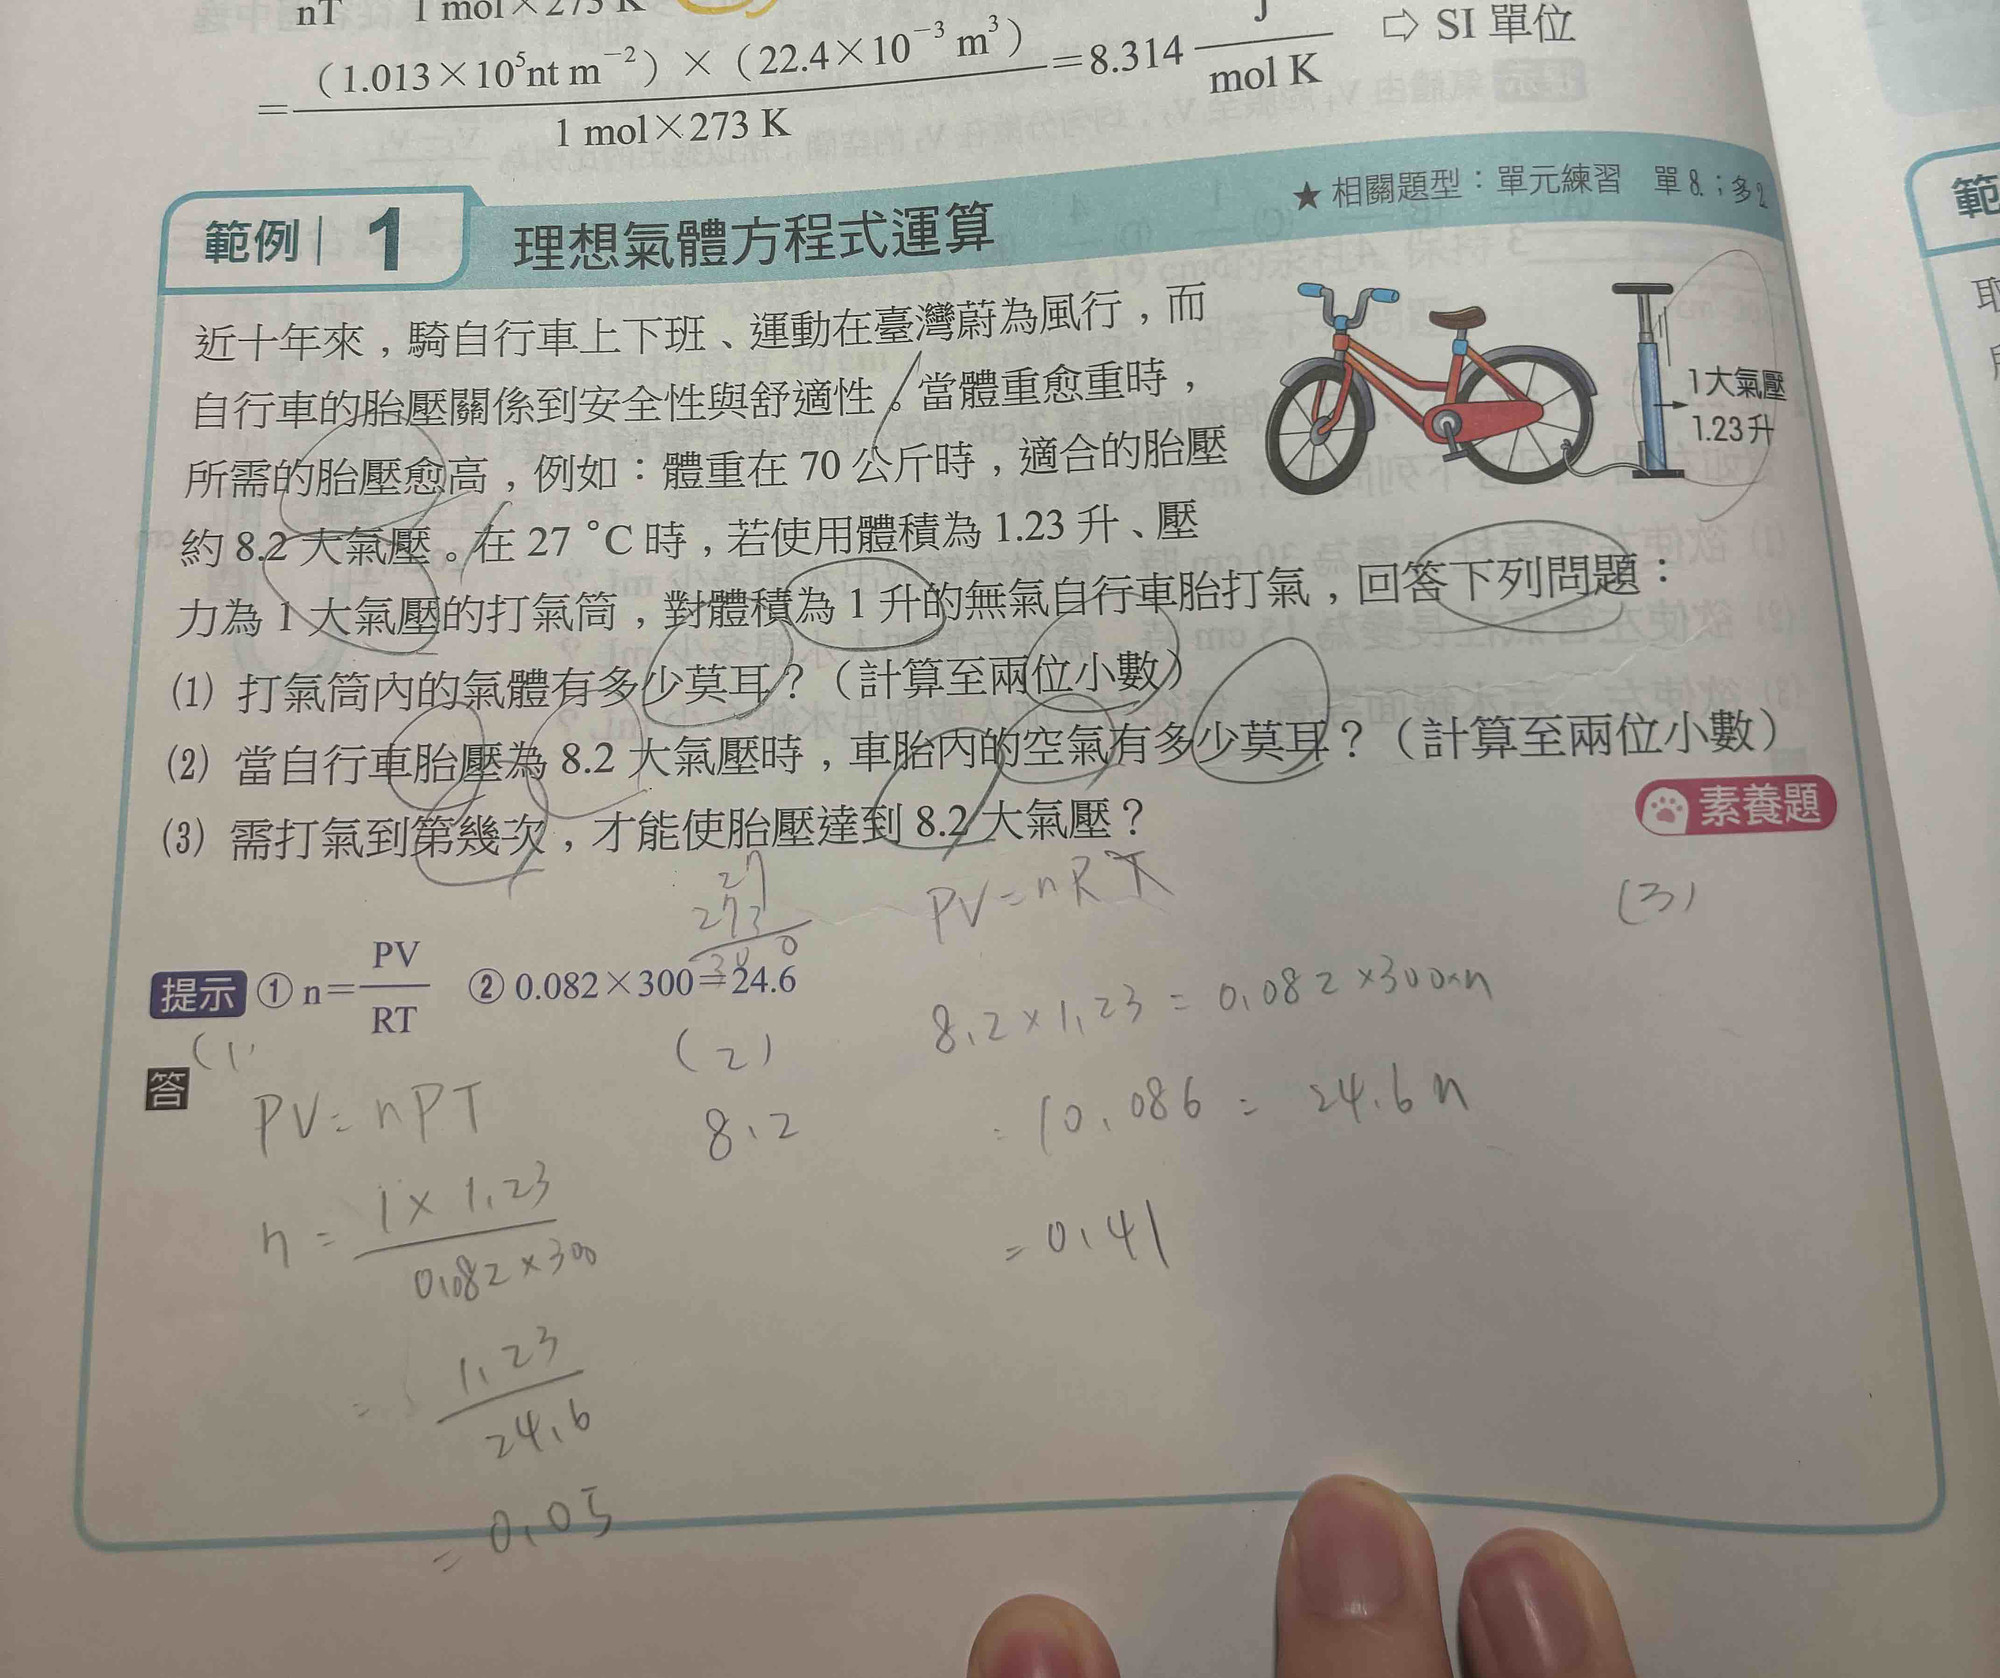 nT 1 mol×273 K
=(1.013×10⁵nt m⁻²)×(22.4×10⁻³ m³)/1 mol×273 K=8.314 J/mol K ⇨ SI 單位
範例 1 理想氣體方程式運算 ★相關題型：單元練習 單8.；多2.
近十年來，騎自行車上下班、運動在臺灣蔚為風行，而
自行車的胎壓關係到安全性與舒適性。當體重愈重時，
所需的胎壓愈高，例如：體重在 70 公斤時，適合的胎壓
約 8.2 大氣壓。在 27 ℃ 時，若使用體積為 1.23 升、壓
力為 1 大氣壓的打氣筒，對體積為 1 升的無氣自行車胎打氣，回答下列問題：
1大氣壓
1.23升
⑴ 打氣筒內的氣體有多少莫耳？（計算至兩位小數）
⑵ 當自行車胎壓為 8.2 大氣壓時，車胎內的空氣有多少莫耳？（計算至兩位小數）
⑶ 需打氣到第幾次，才能使胎壓達到 8.2 大氣壓？
素養題
27
273
300
提示 ① n=PV/RT ② 0.082×300=24.6
答
(1)
PV=nPT
n=1×1.23/0.082×300
=1.23/24.6
=0.05
(2)
8.2
PV=nRT
8.2×1.23=0.082×300×n
=10.086=24.6n
=0.41
(3)
範
取